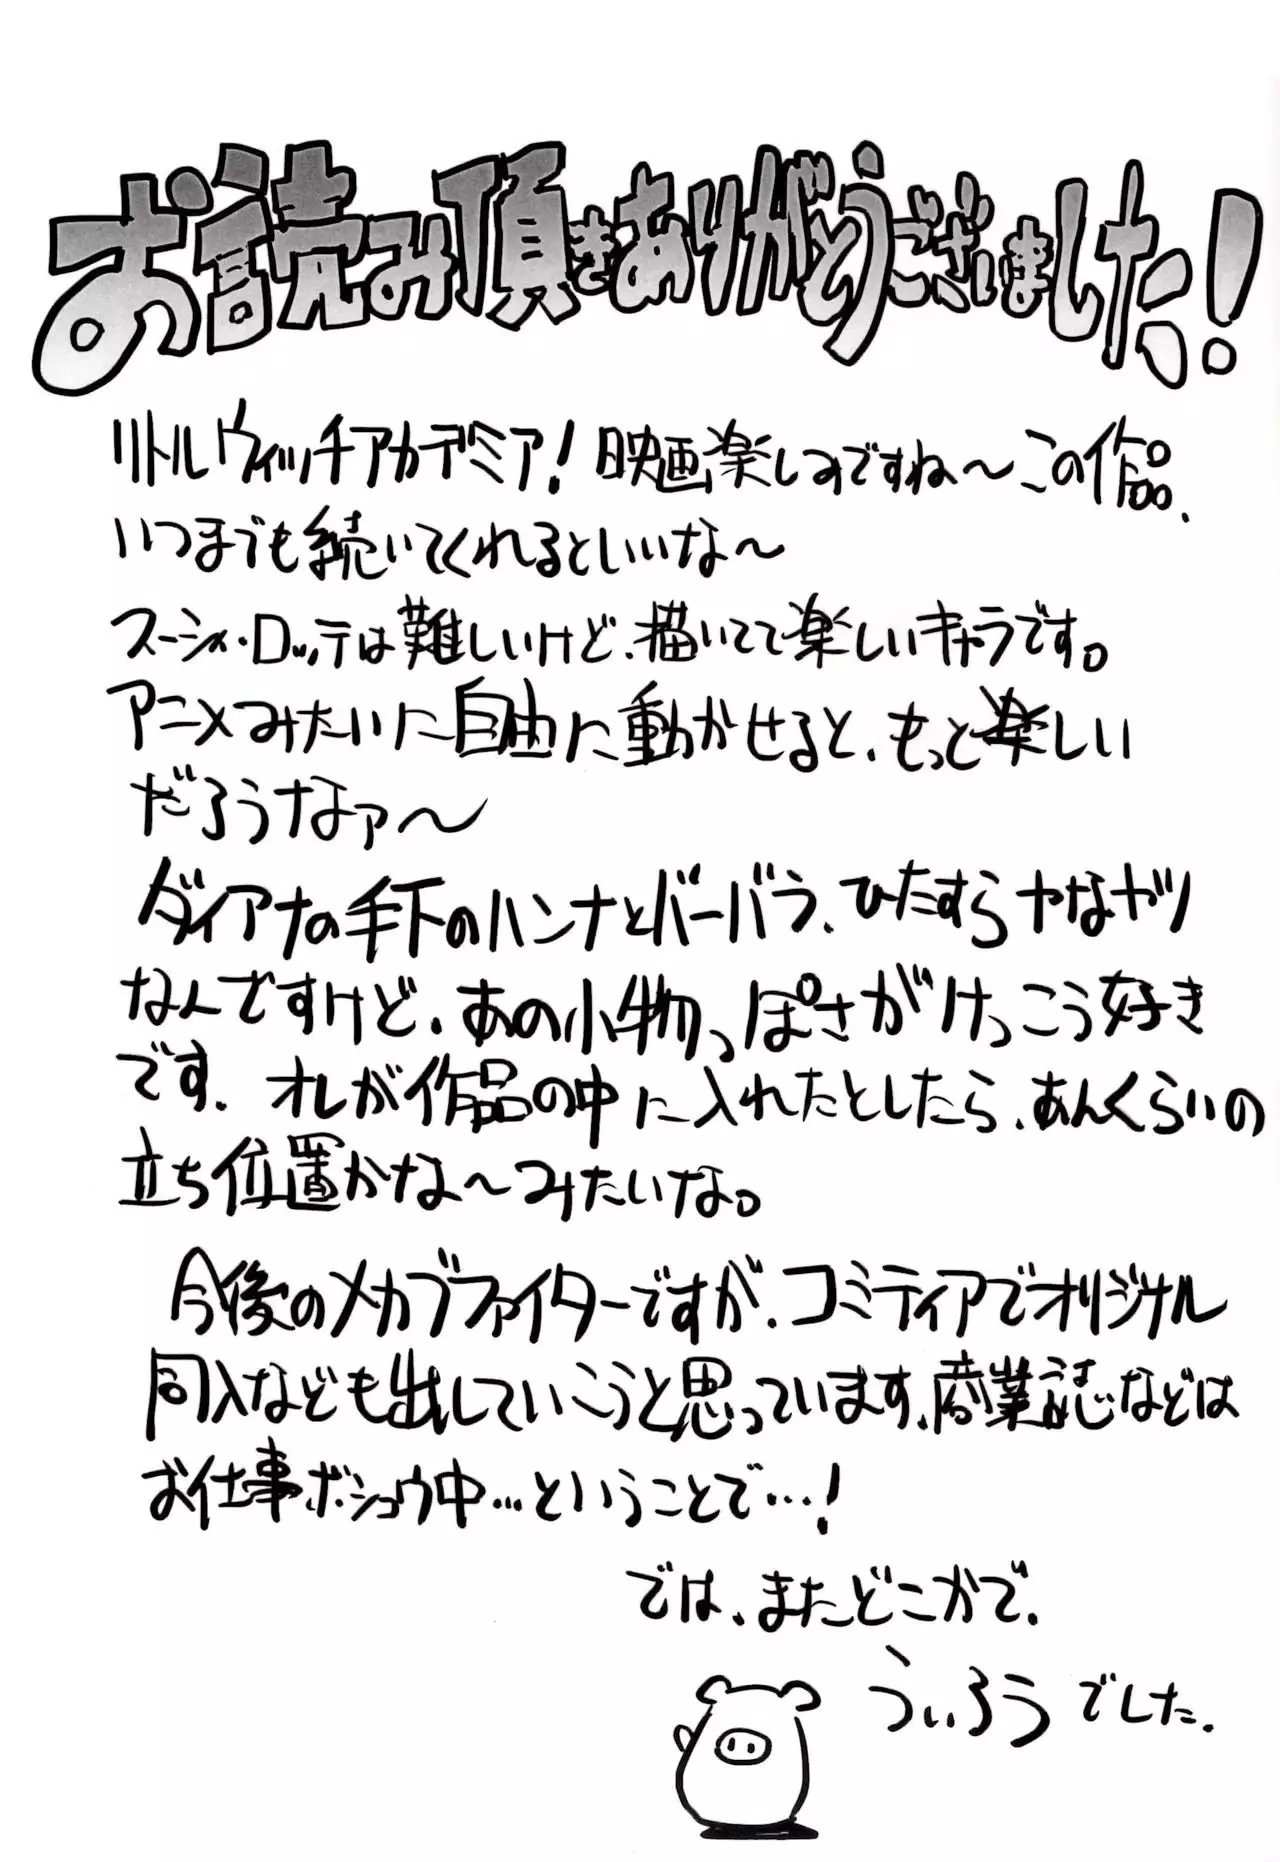 お読み頂きありがとうございました!
リトルウィッチアカデミア!映画楽しみですね〜この作品、
いつまでも続いてくれるといいな〜
スーシィ・ロッテは難しいけど、描いてて楽しいキャラです。
アニメみたいに自由に動かせると、もっと楽しい
だろうなァ〜
ダイアナの手下のハンナとバーバラ、ひたすらヤなヤツ
なんですけど、あの小物っぽさがけっこう好き
です、オレが作品の中に入れたとしたら、あんくらいの
立ち位置かな〜みたいな。
今後のメカブファイターですが、コミティアでオリジナル
同人なども出していこうと思っています、商業誌などは
お仕事ボシュウ中…ということで…!
では、またどこかで、
ういろうでした、